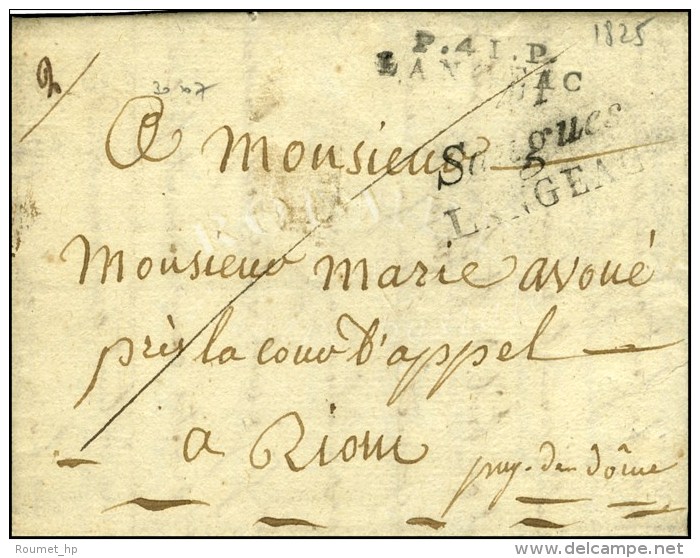 1825
P.41.P.
LANGEAC
41
Saugues
LANGEAC
A Monsieur
Monsieur marie avoué
près la cour d'appel
a Riom
puy-de-dôme
Roumet_hp
©delcampe.net